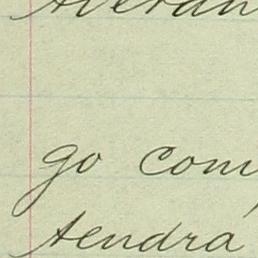 go com
tendra